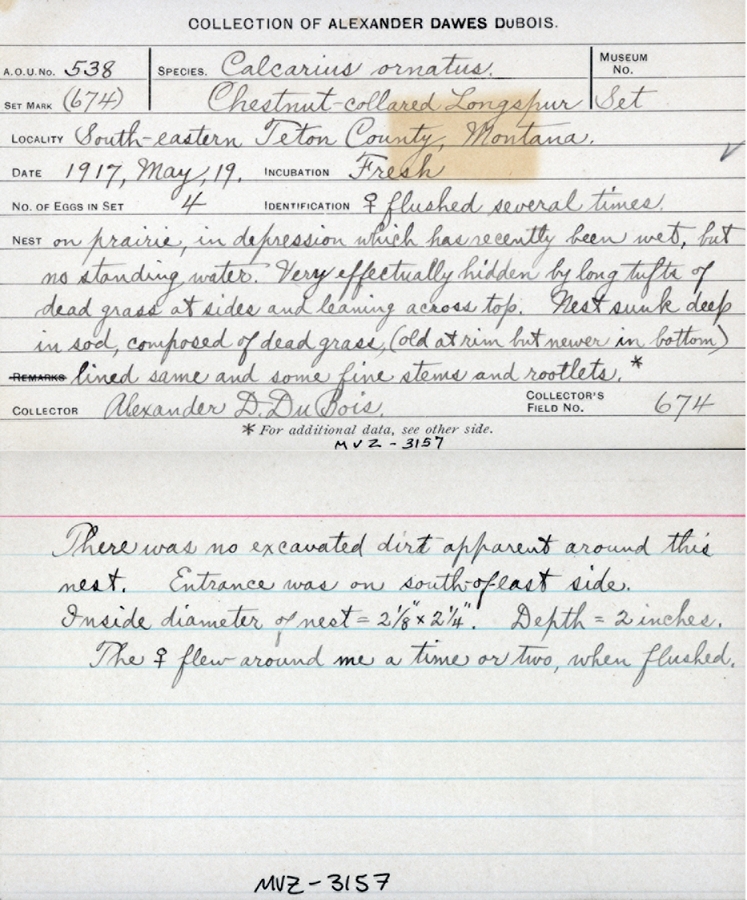 COLLECTION OF ALEXANDER DAWES DUBOIS.
A.O.U. No. 538 SPECIES. Calcarius ornatus. MUSEUM No.
SET MARK (674) Chestnut-collared Longspur Set
LOCALITY South-eastern Teton County, Montana.
DATE 1917, May, 19. INCUBATION Fresh
No. OF EGGS IN SET 4 IDENTIFICATION ♀ flushed several times.
NEST on prairie, in depression which has recently been wet, but
no standing water. Very effectually hidden by long tufts of
dead grass at sides and leaning across top. Nest sunk deep
in sod, composed of dead grass, (old at rim but newer in bottom)
REMARKS lined same and some fine stems and rootlets. *
COLLECTOR Alexander D. DuBois. COLLECTOR'S FIELD No. 674
* For additional data, see other side.
MVZ - 3157
There was no excavated dirt apparent around this
nest. Entrance was on south of east side.
Inside diameter of nest = 2 1/8" x 2 1/4". Depth = 2 inches.
The ♀ flew around me a time or two, when flushed.
MVZ - 3157